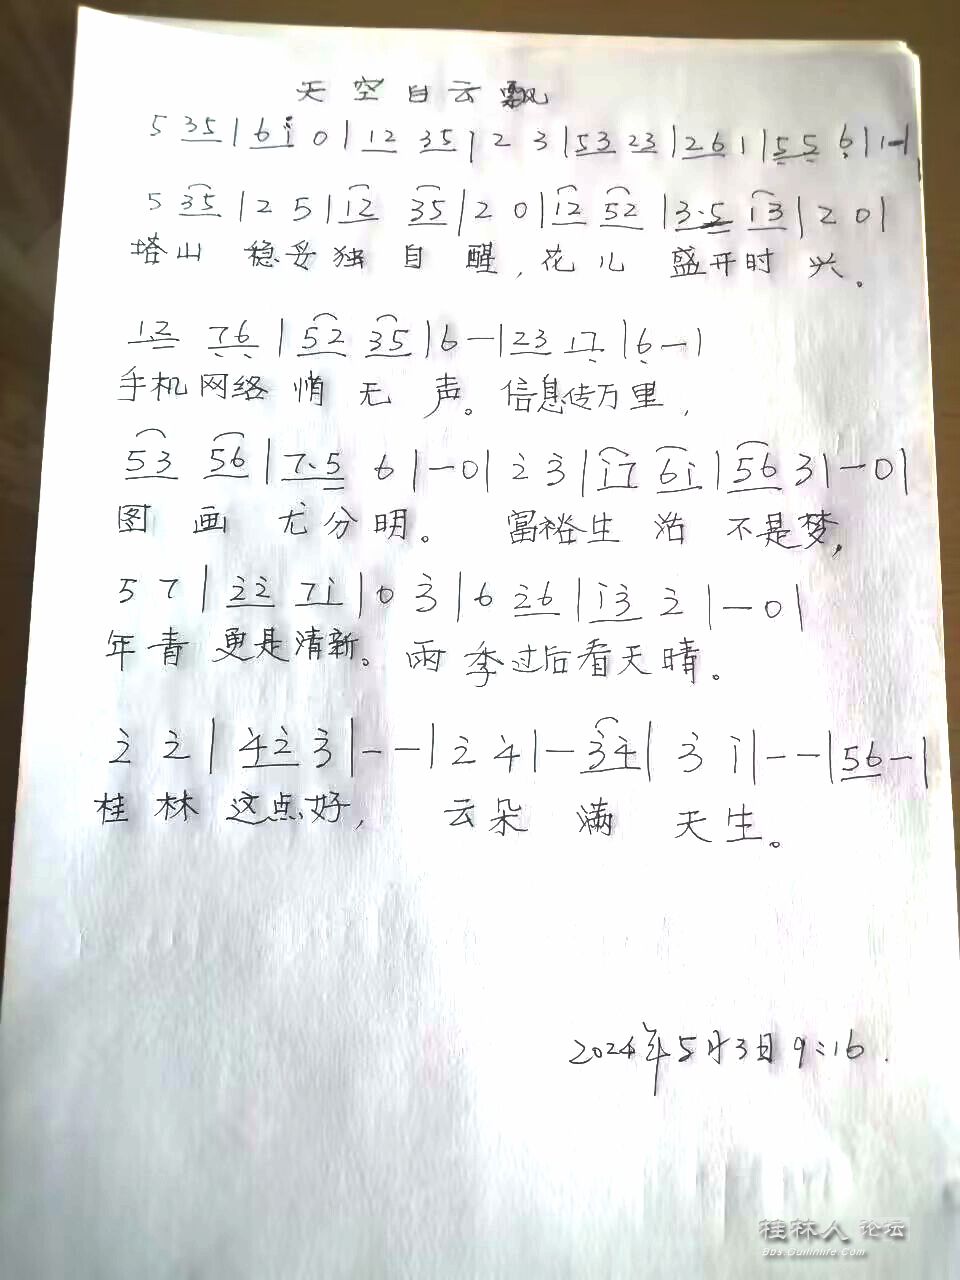 天空白云飘
5 35 | 6 i 0 | 12 35 | 2 3 | 53 23 | 26 1 | 55 6 | 1 - |
5 35 | 2 5 | 12 35 | 2 0 | 12 52 | 3·5 i3 | 2 0 |
塔山 稳妥独 自 醒,花 儿 盛开时 兴。
1·2 76 | 52 35 | 6 - | 23 17 | 6 - |
手机网络 悄 无 声。信息传万里,
53 56 | 7·5 6 | - 0 | 2 3 | i7 6i | 56 3 | - 0 |
图 画 尤分明。 富裕生 活 不是梦,
5 7 | 22 7i | 0 3 | 6 26 | i3 2 | - 0 |
年青 更是清新。雨季过后看天晴。
2 2 | 42 3 | - - | 2 4 | - 34 | 3 i | - - | 56 - |
桂 林 这点好, 云朵 满 天生。
2024年5月3日9:16.
桂林人 论坛
Bbs.Guilinlife.Com